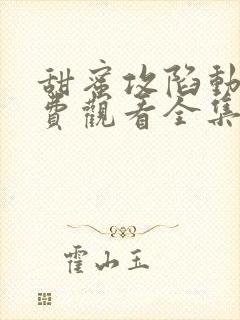 甜蜜攻陷動
費觀看全集
霍山玉